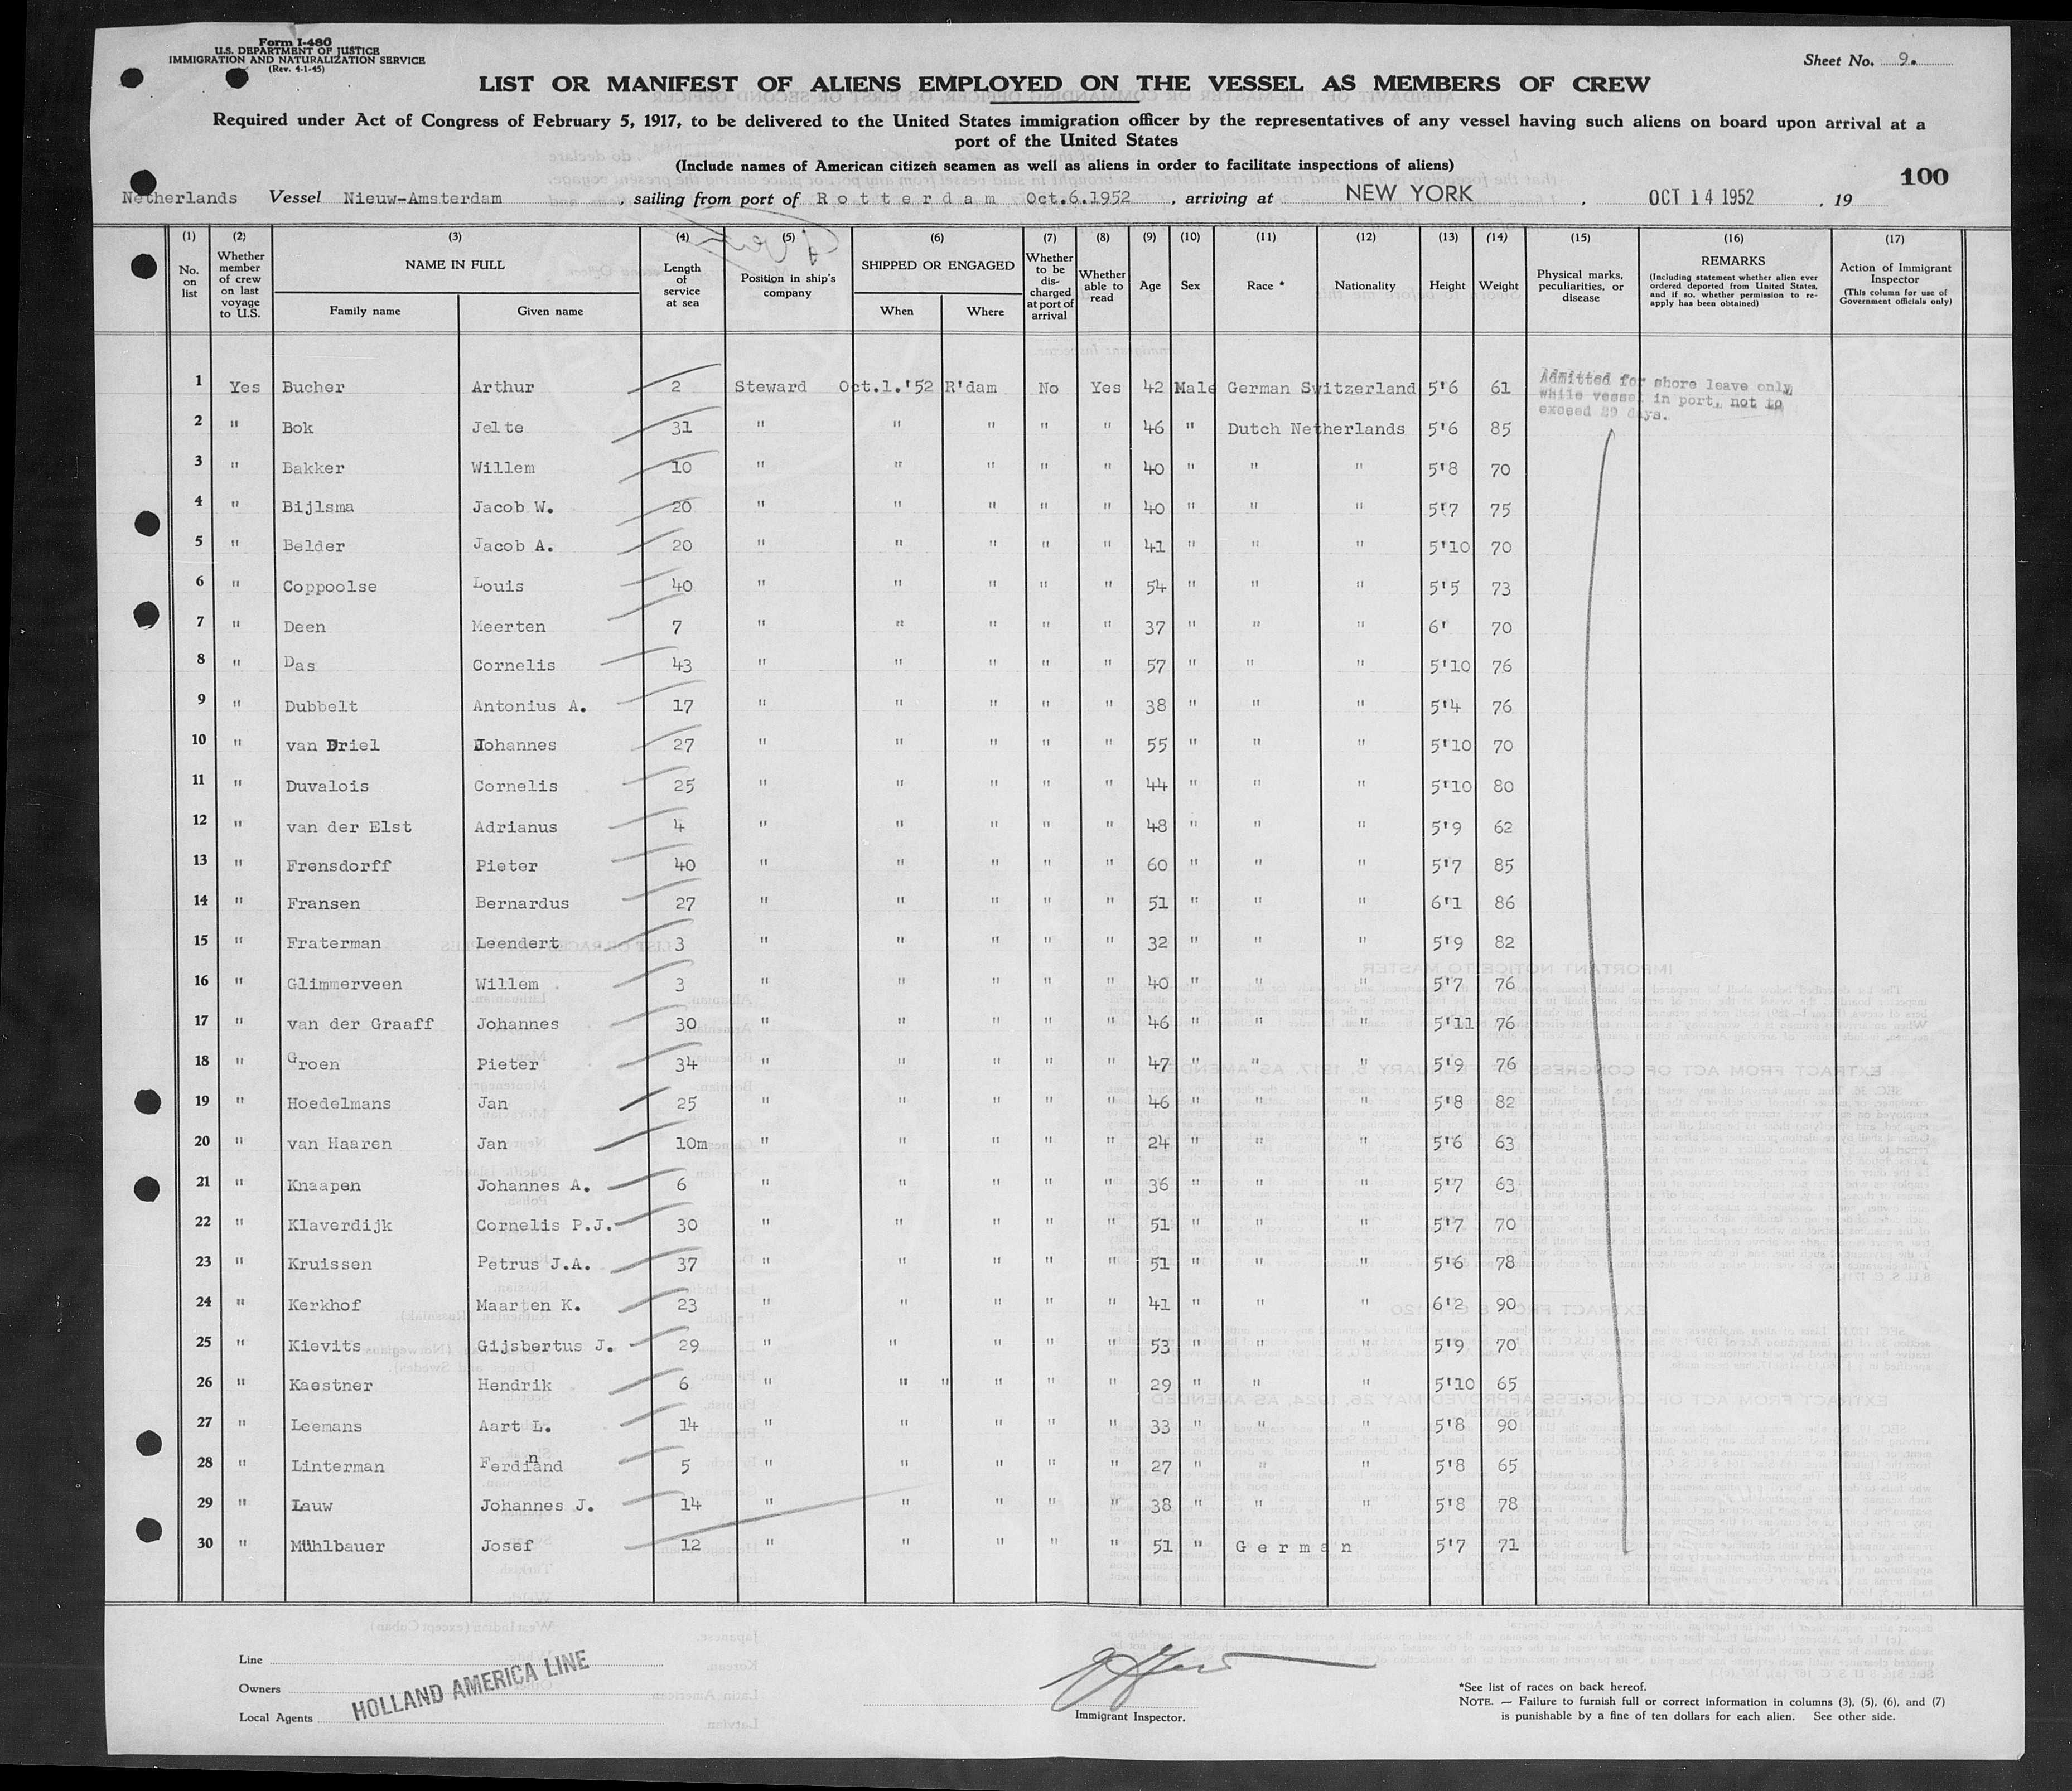 Form I-480
U.S. DEPARTMENT OF JUSTICE
IMMIGRATION AND NATURALIZATION SERVICE
(Rev. 4-1-45)
Sheet No. 9.
LIST OR MANIFEST OF ALIENS EMPLOYED ON THE VESSEL AS MEMBERS OF CREW
Required under Act of Congress of February 5, 1917, to be delivered to the United States immigration officer by the representatives of any vessel having such aliens on board upon arrival at a
port of the United States
(Include names of American citizen seamen as well as aliens in order to facilitate inspections of aliens)
100
Netherlands Vessel Nieuw-Amsterdam, sailing from port of Rotterdam Oct.6.1952, arriving at NEW YORK, OCT 14 1952, 19
(1) (2) (3) (4) (5) (6) (7) (8) (9) (10) (11) (12) (13) (14) (15) (16) (17)
No. on list
Whether member of crew on last voyage to U.S.
NAME IN FULL
Family name
Given name
Length of service at sea
Position in ship's company
SHIPPED OR ENGAGED
When
Where
Whether to be discharged at port of arrival
Whether able to read
Age
Sex
Race *
Nationality
Height
Weight
Physical marks, peculiarities, or disease
REMARKS
(Including statement whether alien ever ordered deported from United States, and if so, whether permission to re-apply has been obtained)
Action of Immigrant Inspector
(This column for use of Government officials only)
1 Yes Bucher Arthur 2 Steward Oct.1.'52 R'dam No Yes 42 Male German Switzerland 5'6 61
Admitted for shore leave only
while vessel in port, not to
exceed 29 days.
2 " Bok Jelte 31 " " " " " 46 " Dutch Netherlands 5'6 85
3 " Bakker Willem 10 " " " " " 40 " " " 5'8 70
4 " Bijlsma Jacob W. 20 " " " " " 40 " " " 5'7 75
5 " Belder Jacob A. 20 " " " " " 41 " " " 5'10 70
6 " Coppoolse Louis 40 " " " " " 54 " " " 5'5 73
7 " Deen Meerten 7 " " " " " 37 " " " 6' 70
8 " Das Cornelis 43 " " " " " 57 " " " 5'10 76
9 " Dubbelt Antonius A. 17 " " " " " 38 " " " 5'4 76
10 " van Driel Johannes 27 " " " " " 55 " " " 5'10 70
11 " Duvalois Cornelis 25 " " " " " 44 " " " 5'10 80
12 " van der Elst Adrianus 4 " " " " " 48 " " " 5'9 62
13 " Frensdorff Pieter 40 " " " " " 60 " " " 5'7 85
14 " Fransen Bernardus 27 " " " " " 51 " " " 6'1 86
15 " Fraterman Leendert 3 " " " " " 32 " " " 5'9 82
16 " Glimmerveen Willem 3 " " " " " 40 " " " 5'7 76
17 " van der Graaff Johannes 30 " " " " " 46 " " " 5'11 76
18 " Groen Pieter 34 " " " " " 47 " " " 5'9 76
19 " Hoedelmans Jan 25 " " " " " 46 " " " 5'8 82
20 " van Haaren Jan 10m " " " " " 24 " " " 5'6 63
21 " Knaapen Johannes A. 6 " " " " " 36 " " " 5'7 63
22 " Klaverdijk Cornelis P.J. 30 " " " " " 51 " " " 5'7 70
23 " Kruissen Petrus J.A. 37 " " " " " 51 " " " 5'6 78
24 " Kerkhof Maarten K. 23 " " " " " 41 " " " 6'2 90
25 " Kievits Gijsbertus J. 29 " " " " " 53 " " " 5'9 70
26 " Kaestner Hendrik 6 " " " " " " 29 " " " 5'10 65
27 " Leemans Aart L. 14 " " " " " 33 " " " 5'8 90
28 " Linterman Ferdinand 5 " " " " " 27 " " " 5'8 65
29 " Lauw Johannes J. 14 " " " " " 38 " " " 5'8 78
30 " Mühlbauer Josef 12 " " " " " 51 " German 5'7 71
Line
Owners
Local Agents
HOLLAND AMERICA LINE
Immigrant Inspector.
*See list of races on back hereof.
NOTE. — Failure to furnish full or correct information in columns (3), (5), (6), and (7)
is punishable by a fine of ten dollars for each alien. See other side.